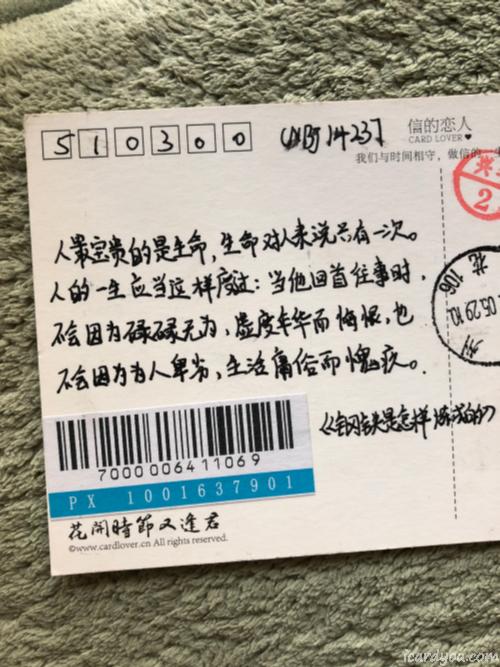 510300
信的恋人
CARD LOVER
我们与时间相守，做信的一
2
人最宝贵的是生命，生命对人来说只有一次。
人的一生应当这样度过：当他回首往事时，
不会因为碌碌无为，虚度年华而悔恨，也
不会因为为人卑劣，生活庸俗而愧疚。
《钢铁是怎样炼成的》
106
7000006411069
PX 1001637901
花開時節又逢君
©www.cardlover.cn All rights reserved.
icardyou.com